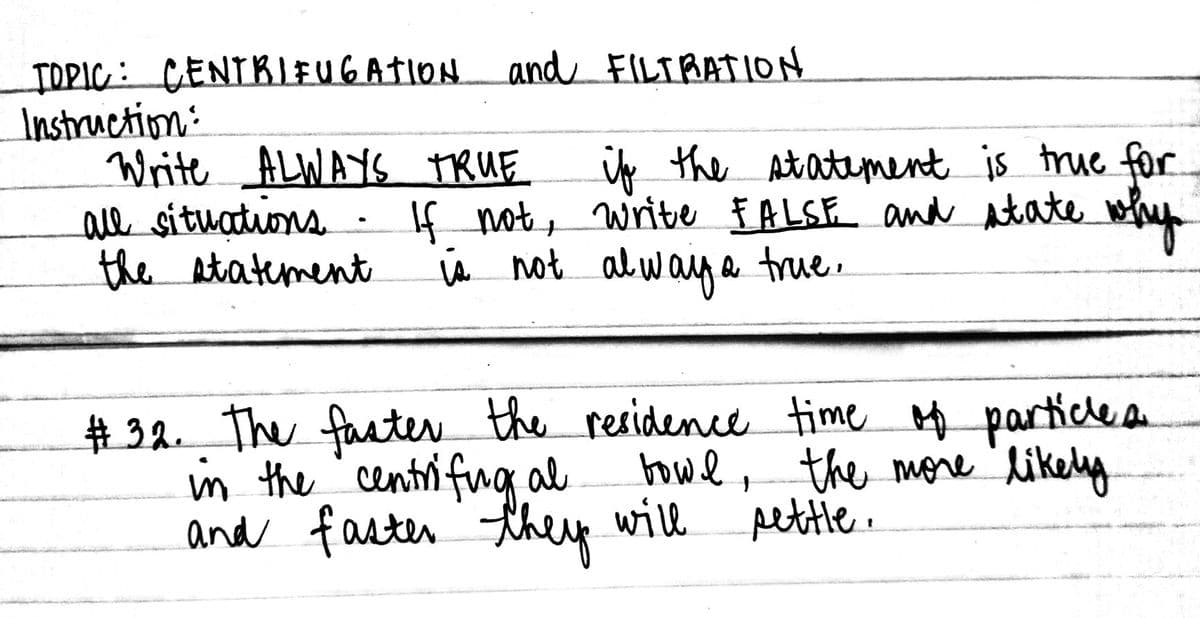 TOPIC: CENTRIFUGATION and FILTRATION
Instruction:
Write ALWAYS TRUE if the statement is true for
all situations. If not, write FALSE and state why
the statement is not always true.
#32. The faster the residence time of particles
in the centrifugal bowl, the more likely
and faster they will settle.